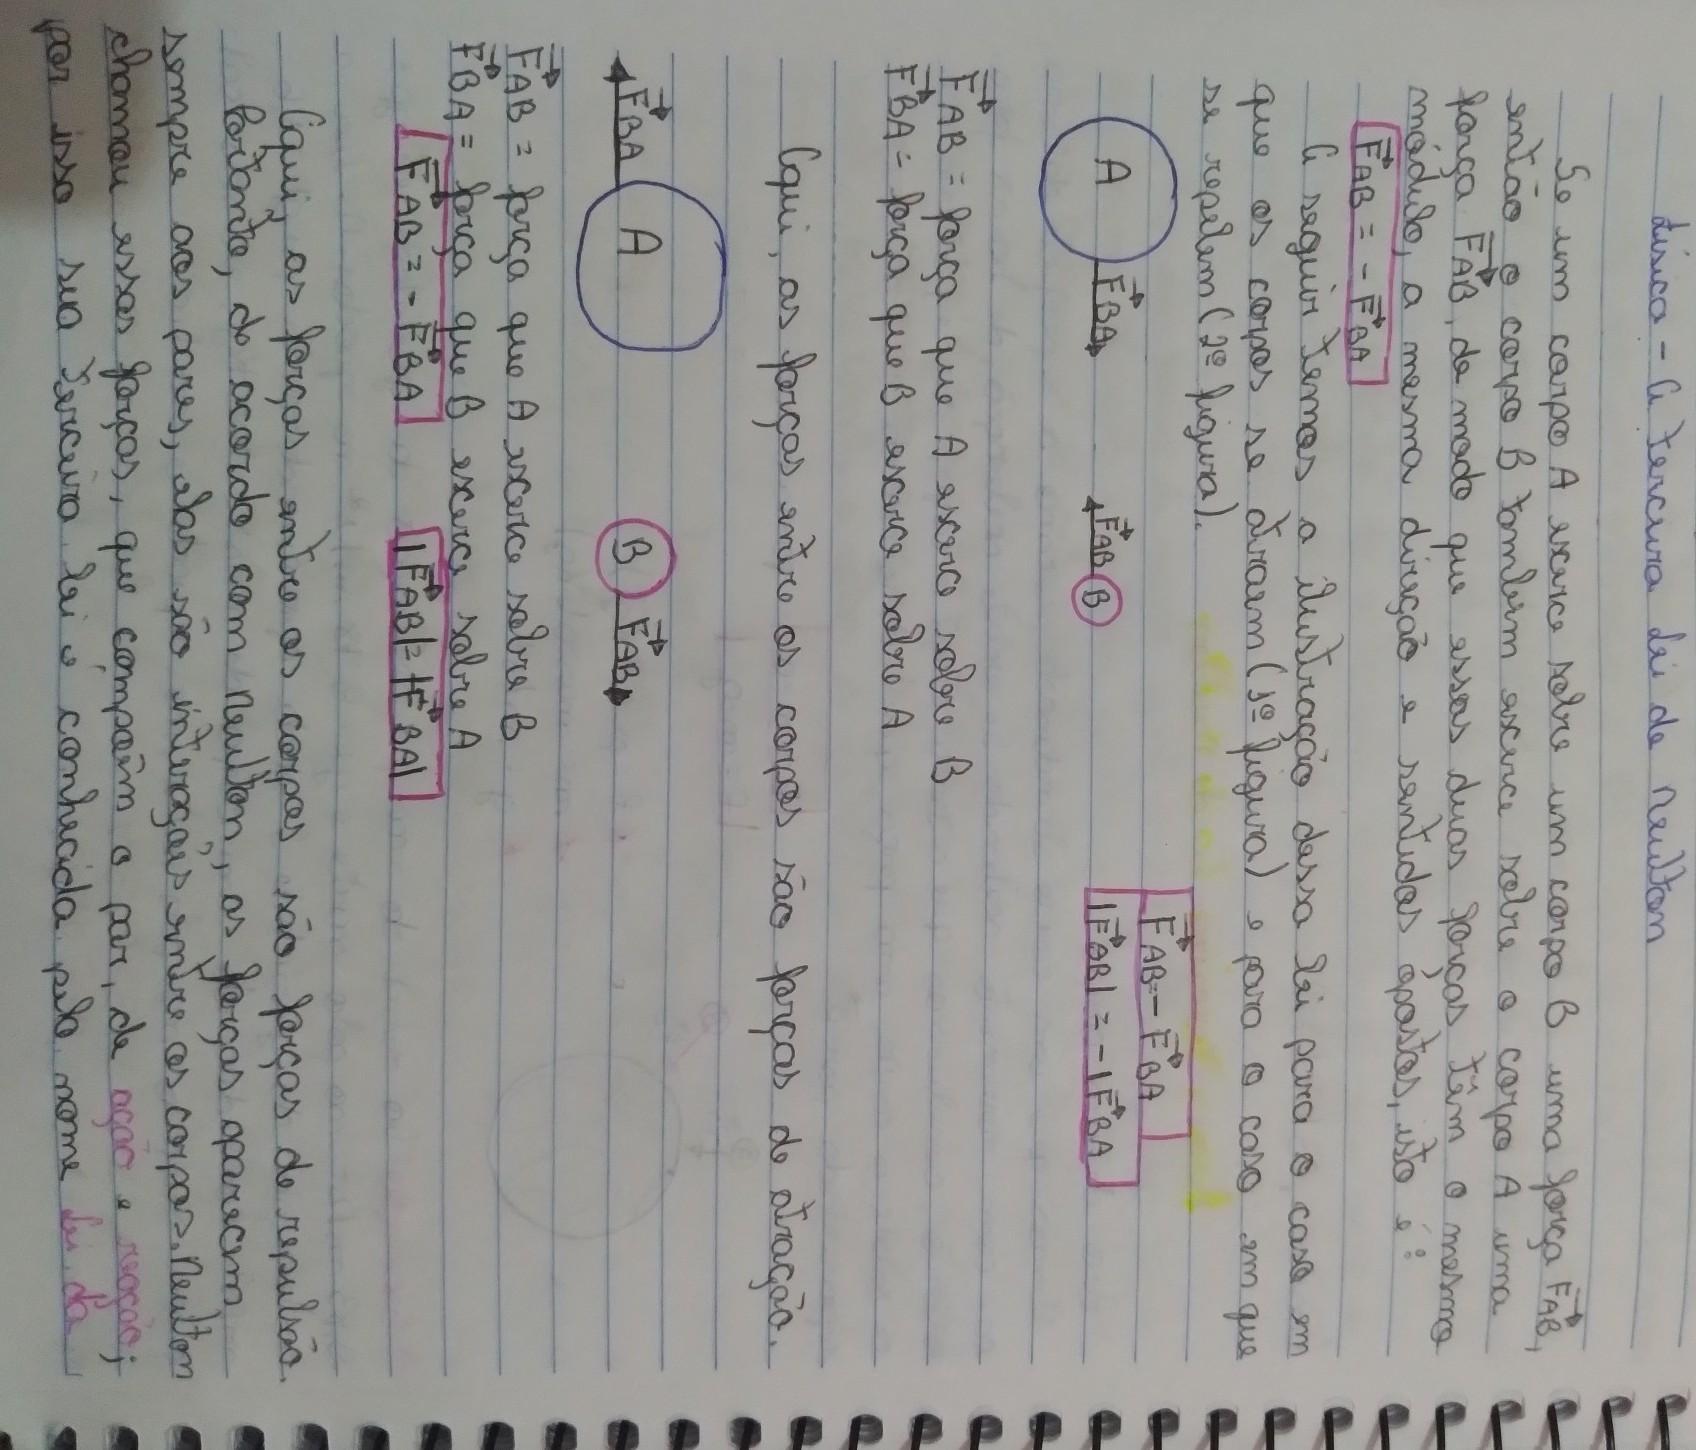 Física - A terceira Lei de Newton
Se um corpo A exerce sobre um corpo B uma força F⃗AB,
então o corpo B também exerce sobre o corpo A uma
força F⃗AB, de modo que essas duas forças têm o mesmo
módulo, a mesma direção e sentidos opostos, isto é:
F⃗AB = - F⃗BA
A seguir temos a ilustração dessa lei para o caso em
que os corpos se atraem (1º figura) e para o caso em que
se repelem (2º figura).
F⃗AB = - F⃗BA
A F⃗BA F⃗AB B |F⃗AB| = -|F⃗BA
F⃗AB = força que A exerce sobre B
F⃗BA = força que B exerce sobre A
Aqui, as forças entre os corpos são forças de atração.
F⃗BA A B F⃗AB
F⃗AB = força que A exerce sobre B
F⃗BA = força que B exerce sobre A
F⃗AB = - F⃗BA |F⃗AB| = |F⃗BA|
Aqui, as forças entre os corpos são forças de repulsão.
Portanto, de acordo com Newton, as forças aparecem
sempre aos pares, elas são interações entre os corpos. Newton
chamou essas forças, que compõem o par, de ação e reação;
por isso sua terceira lei é conhecida pelo nome Lei da